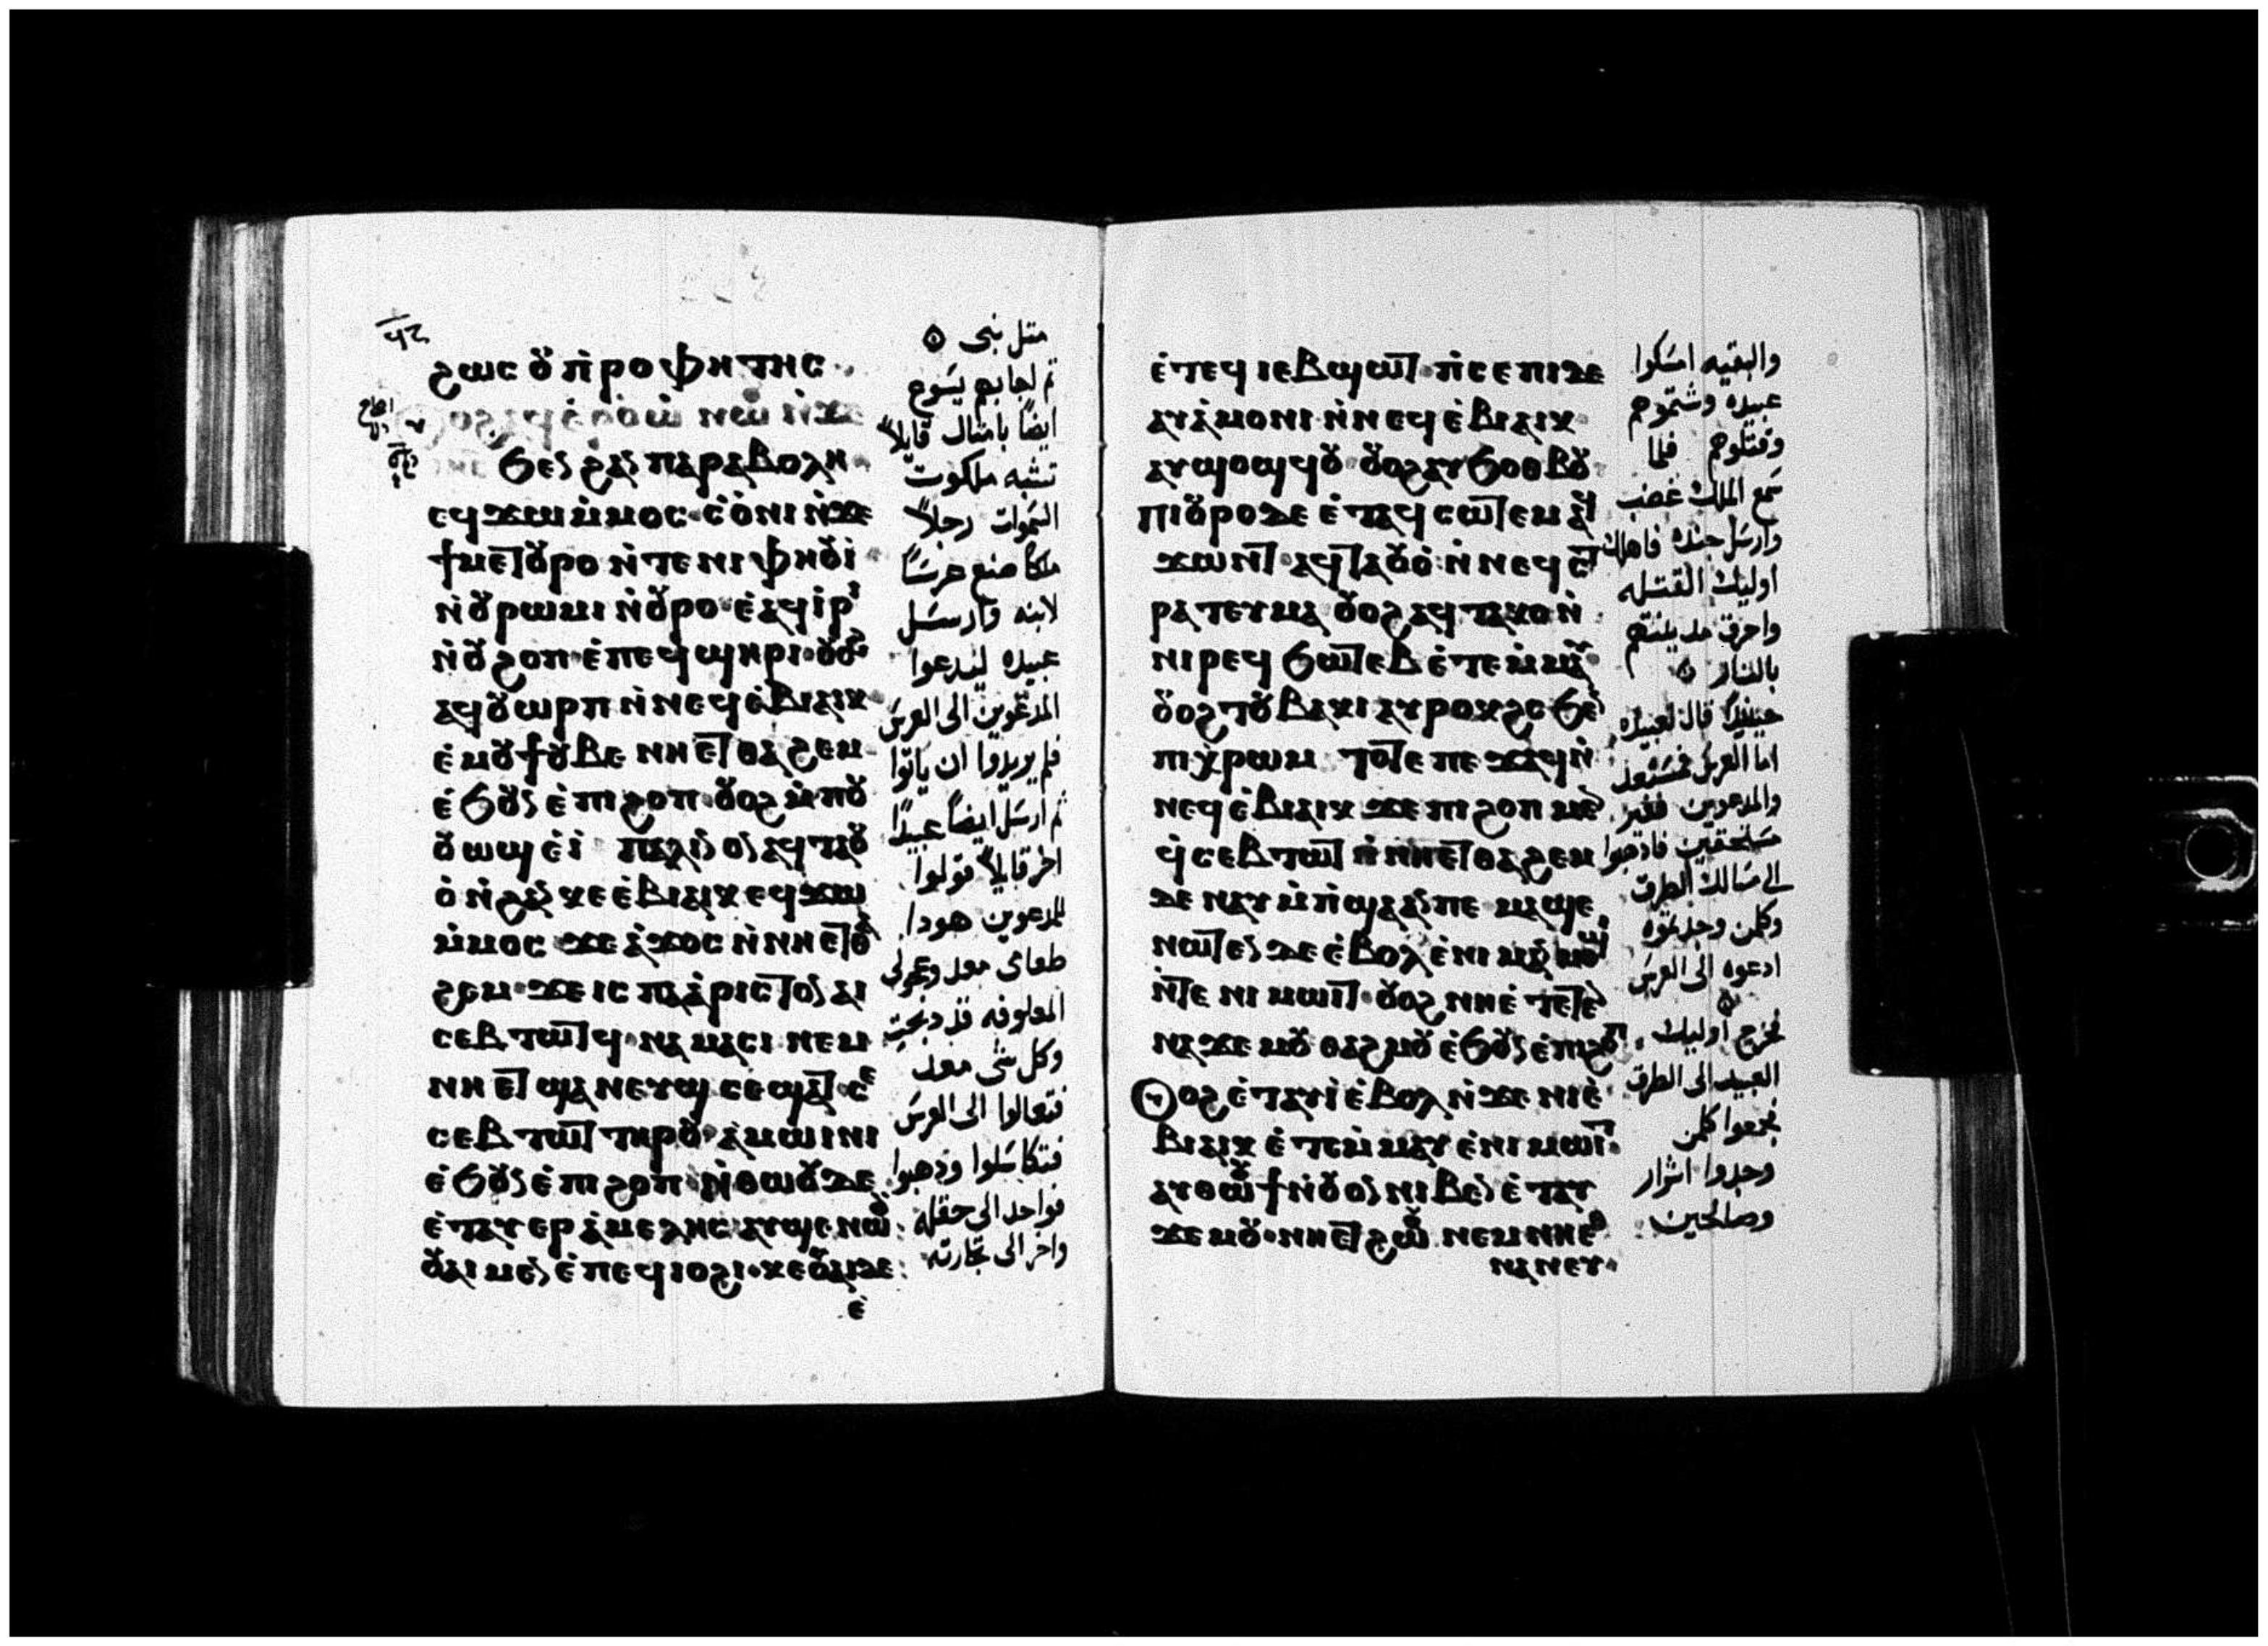 ϩⲱⲥ ⲟⲩ ⲡⲣⲟⲫⲏⲧⲏⲥ
ϧⲉⲛ ϩⲁⲛ ⲡⲁⲣⲁⲃⲟⲗⲏ
ⲉϥϫⲱ ⲙ̀ⲙⲟⲥ ⲥ̀ⲟ̀ⲛⲓ ⲛ̀ϫⲉ
ϯⲙⲉⲧⲟⲩⲣⲟ ⲛ̀ⲧⲉ ⲛⲓⲫⲏⲟⲩⲓ̀
ⲛ̀ⲟⲩⲣⲱⲙⲓ ⲛ̀ⲟⲩⲣⲟ ⲉ̀ⲁϥⲓ̀ⲣⲓ
ⲛ̀ⲟⲩϩⲟⲡ ⲉ̀ⲡⲉϥϣⲏⲣⲓ ⲟⲩⲟϩ
ⲁϥⲟⲩⲱⲣⲡ ⲛ̀ⲛⲉϥⲉ̀ⲃⲓⲁⲓⲕ
ⲉ̀ⲙⲟⲩϯ ⲟⲩⲃⲉ ⲛⲏⲉⲧⲑⲁϩⲉⲙ
ⲉ̀ϧⲟⲩⲛ ⲉ̀ⲡⲓϩⲟⲡ ⲟⲩⲟϩ ⲙ̀ⲡⲟⲩ
ⲟⲩⲱϣ ⲉ̀ⲓ̀ ⲡⲁⲗⲓⲛ ⲟⲛ ⲁϥⲧⲁⲟⲩ
ⲟ̀ ⲛ̀ϩⲁⲛⲕⲉⲉ̀ⲃⲓⲁⲓⲕ ⲉϥϫⲱ
ⲙ̀ⲙⲟⲥ ϫⲉ ⲁ̀ϫⲟⲥ ⲛ̀ⲛⲏⲉⲧⲑⲁ
ϩⲉⲙ ϫⲉ ⲓⲥ ⲡⲁⲁ̀ⲣⲓⲥⲧⲟⲛ ⲁⲓ
ⲥⲉⲃⲧⲱⲧϥ ⲛⲁⲙⲁⲥⲓ ⲛⲉⲙ
ⲛⲏⲉⲧϣⲁⲛⲉⲩϣ ⲥⲉϣⲁⲧ ⲥⲉ
ⲥⲉⲃⲧⲱⲧ ⲧⲏⲣⲟⲩ ⲁ̀ⲙⲱⲓⲛⲓ
ⲉ̀ϧⲟⲩⲛ ⲉ̀ⲡⲓϩⲟⲡ ⲛ̀ⲑⲱⲟⲩ ⲇⲉ
ⲉ̀ⲧⲁⲩⲉⲣ ⲁ̀ⲙⲉⲗⲏⲥ ⲁⲩϣⲉⲛⲱⲟⲩ
ⲟⲩⲁⲓ ⲙⲉⲛ ⲉ̀ⲡⲉϥⲓⲟϩⲓ ⲕⲉⲟⲩⲁⲓ ⲇⲉ
ⲉ̀
مثل نبى
ثم اجابهم يسوع
ايضًا بامثال قايلاً
تشبه ملكوت
السموات رجلاً
ملكا صنع عرسًا
لابنه وارسل
عبيده ليدعوا
المدعوين الى العرس
فلم يريدوا ان ياتوا
ثم ارسل ايضًا عبيدًا
اخر قايلاً قولوا
للمدعوين هودا
طعامى معد وعجولى
المعلوفه قد دبحت
وكل شى معد
فتعالوا الى العرس
فتكاسلوا وذهبوا
فواحد الى حقله
واخر الى تجارته
ⲉ̀ⲧⲉϥⲓⲉⲃϣⲱⲧ ⲡ̀ⲥⲉⲡⲓ ⲇⲉ
ⲁⲩⲁ̀ⲙⲟⲛⲓ ⲛ̀ⲛⲉϥⲉ̀ⲃⲓⲁⲓⲕ
ⲁⲩϣⲟϣϥⲟⲩ ⲟⲩⲟϩ ⲁⲩϧⲟⲑⲃⲟⲩ
ⲡⲓⲟⲩⲣⲟ ⲇⲉ ⲉ̀ⲧⲁϥⲥⲱⲧⲉⲙ ⲁϥ
ϫⲱⲛⲧ ⲁϥⲧⲁⲟⲩⲟ̀ ⲛ̀ⲛⲉϥⲥⲧ
ⲣⲁⲧⲉⲩⲙⲁ ⲟⲩⲟϩ ⲁϥⲧⲁⲕⲟ ⲛ̀
ⲛⲓⲣⲉϥϧⲱⲧⲉⲃ ⲉ̀ⲧⲉⲙ̀ⲙⲁⲩ
ⲟⲩⲟϩ ⲧⲟⲩⲃⲁⲕⲓ ⲁⲩⲣⲟⲕϩⲥ ϧⲉⲛ
ⲡⲓⲭ̀ⲣⲱⲙ ⲧⲟⲧⲉ ⲡⲉϫⲁϥ ⲛ̀
ⲛⲉϥⲉ̀ⲃⲓⲁⲓⲕ ϫⲉ ⲡⲓϩⲟⲡ ⲙⲉⲛ
ϥ̀ⲥⲉⲃⲧⲱⲧ ⲛⲏⲉⲧⲑⲁϩⲉⲙ
ⲇⲉ ⲛⲁⲩⲙ̀ⲡ̀ϣⲁ ⲁⲛ ⲡⲉ ⲙⲁϣⲉ
ⲛⲱⲧⲉⲛ ⲇⲉ ⲉ̀ⲃⲟⲗ ⲉ̀ⲛⲓⲙⲁⲙⲙⲟϣⲓ
ⲛ̀ⲧⲉ ⲛⲓⲙⲱⲓⲧ ⲟⲩⲟϩ ⲛⲏⲉ̀ⲧⲉⲧⲉⲛ
ⲛⲁϫⲉⲙⲟⲩ ⲑⲁϩⲙⲟⲩ ⲉ̀ϧⲟⲩⲛ ⲉ̀ⲡⲓϩⲟⲡ
ⲟⲩⲟϩ ⲉ̀ⲧⲁⲩⲓ̀ ⲉ̀ⲃⲟⲗ ⲛ̀ϫⲉ ⲛⲓⲉ̀
ⲃⲓⲁⲓⲕ ⲉ̀ⲧⲉⲙ̀ⲙⲁⲩ ⲉ̀ⲛⲓⲙⲱⲓⲧ
ⲁⲩⲑⲱⲟⲩϯ ⲛ̀ⲟⲩⲟⲛ ⲛⲓⲃⲉⲛ ⲉ̀ⲧⲁⲩ
ϫⲉⲙⲟⲩ ⲛⲏⲉⲧϩⲱⲟⲩ ⲛⲉⲙ ⲛⲏⲉⲑ
ⲛⲁⲛⲉⲩ
والبقيه امسكوا
عبيده وشتموهم
وقتلوهم فلما
سمع الملك غضب
وارسل جنده فاهلك
اوليك القتله
واحرق مدينتهم
بالنار
حينيذً قال لعبيده
اما العرس فمستعد
والمدعوين فغير
مستحقين فاذهبوا
الى مسالك الطرق
وكلمن وجدتموه
ادعوه الى العرس
فخرج اوليك
العبيد الى الطرق
فجمعوا كلمن
وجدوا اشرار
وصالحين